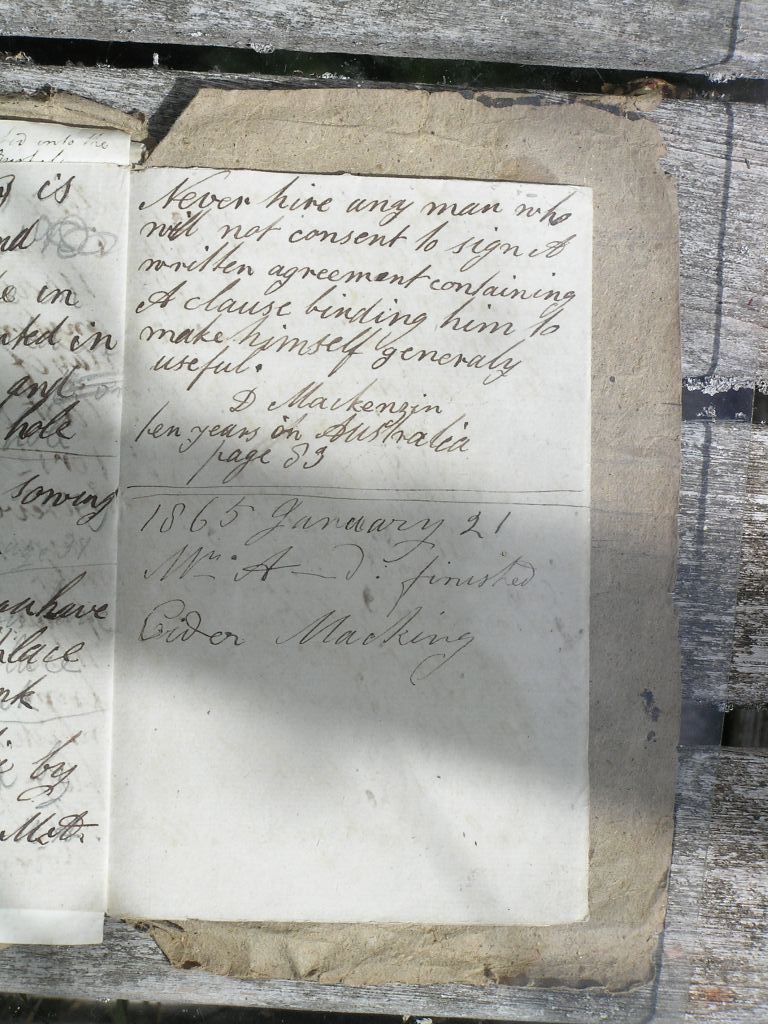 ted into the
is
nd
e in
uted in
and
hole
sowing
you have
place
nk
by
M.A.
Never hire any man who
will not consent to sign A
written agreement containing
A clause binding him to
make himself generaly
useful.
D Mackenzin
ten years in Australia
page 83
1865 January 21
Mr. A—d. finished
Cider Macking